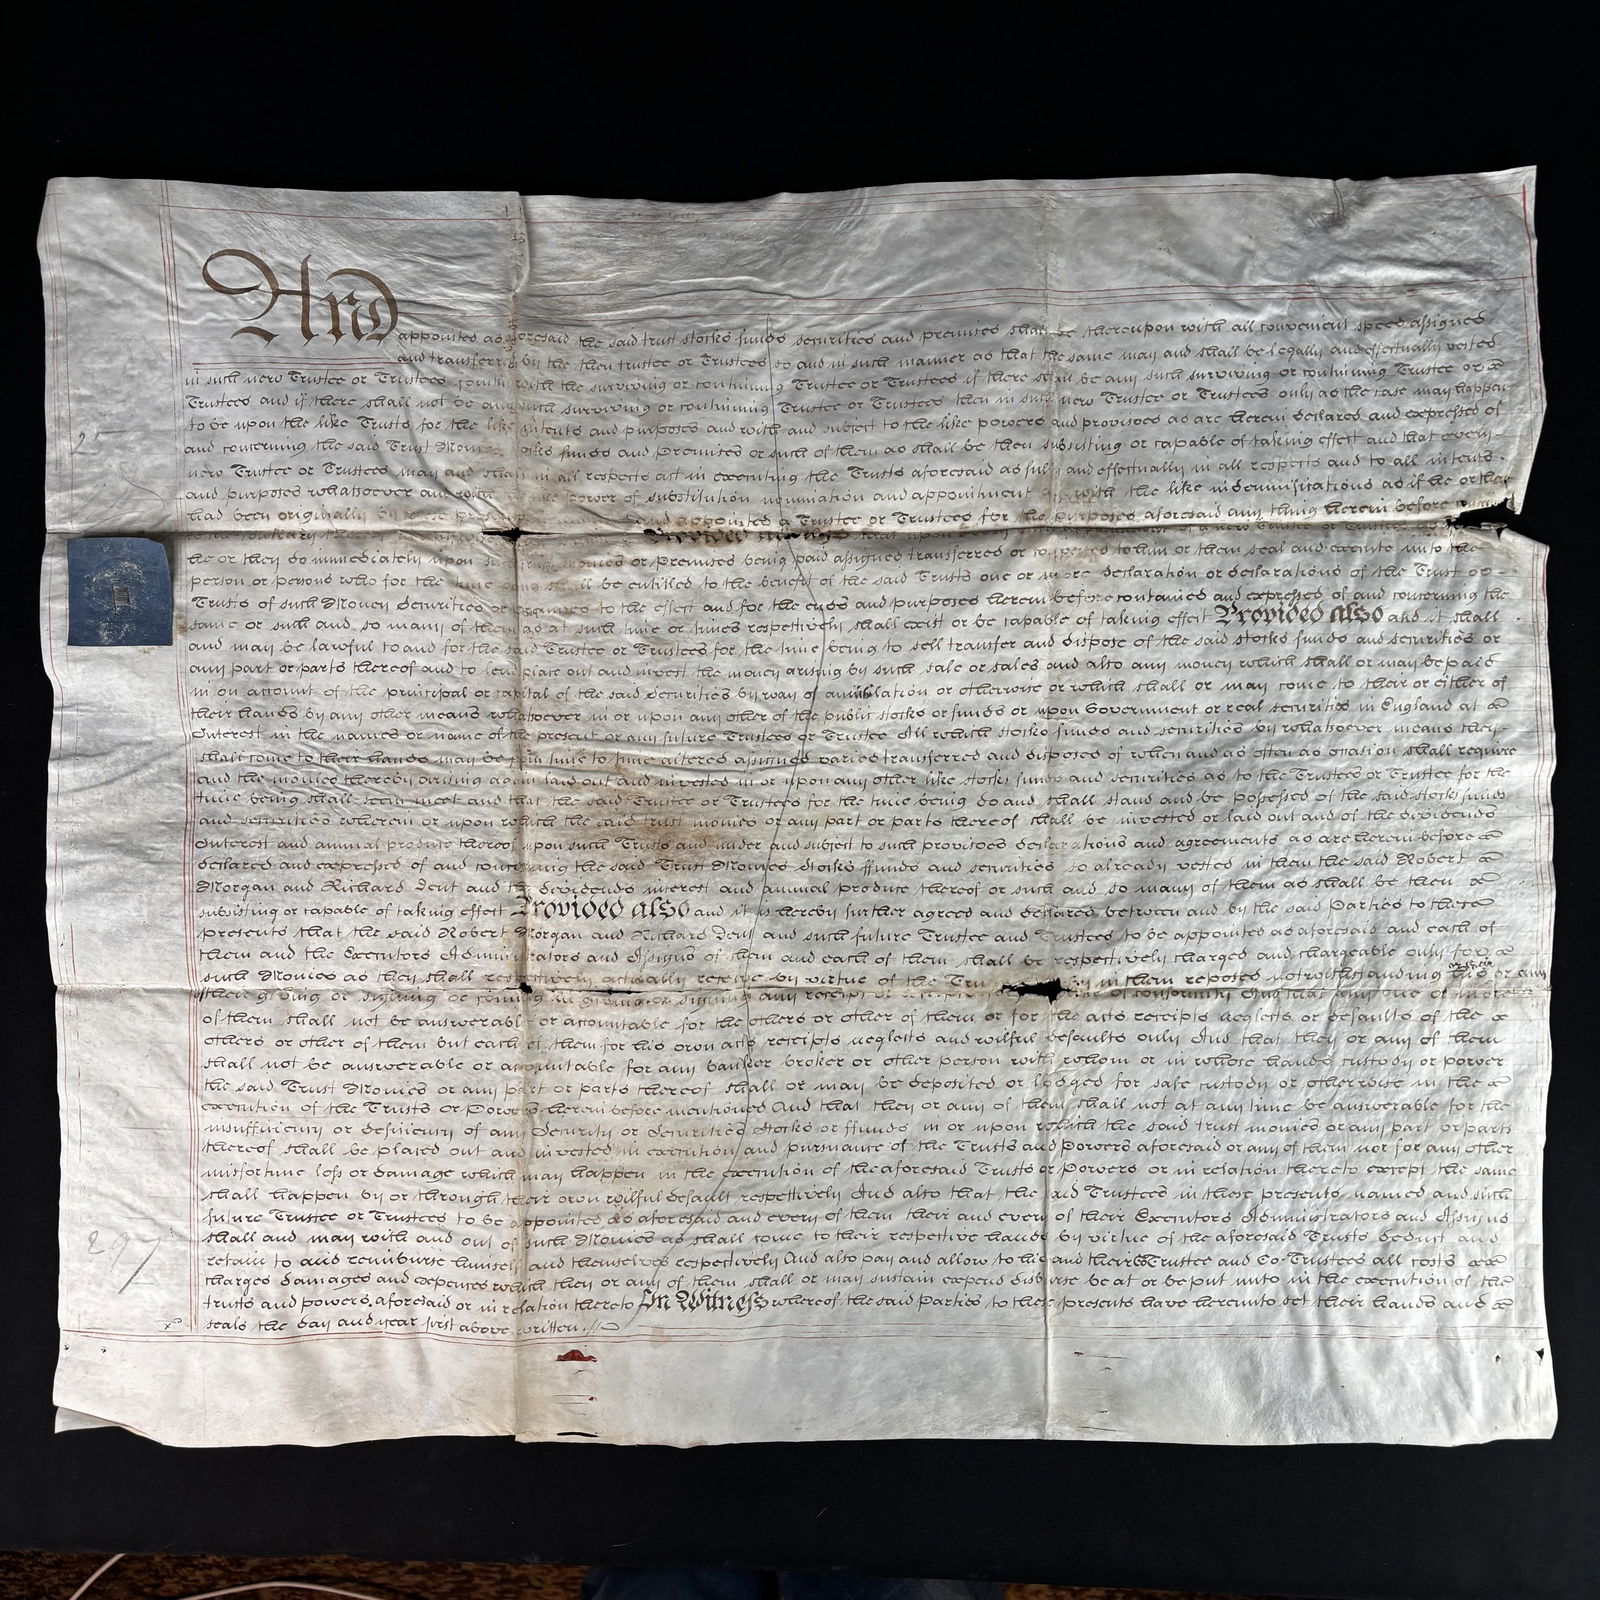 And
appointed as aforesaid the said trust stocks funds securities and premises shall be thereupon with all convenient speed assigned
and transferred by the then trustee or Trustees so and in such manner as that the same may and shall be legally and effectually vested
in such new Trustee or Trustees jointly with the surviving or continuing Trustee or Trustees if there shall be any such surviving or continuing Trustee or
Trustees and if there shall not be any such surviving or continuing Trustee or Trustees then in such new Trustee or Trustees only as the case may happen
to be upon the like Trusts for the like intents and purposes and with and subject to the like powers and provisoes as are herein declared and expressed of
and concerning the said Trust Monies stocks funds and Premises or such of them as shall be then subsisting or capable of taking effect and that every
new Trustee or Trustees may and shall in all respects act in executing the Trusts aforesaid as fully and effectually in all respects and to all intents
and purposes whatsoever and with the power of substitution nomination and appointment and with the like indemnifications as if he or they
had been originally by these presents and appointed a Trustee or Trustees for the purposes aforesaid any thing herein before
to the contrary Provided that upon a new Trustee or Trustees
he or they do immediately upon such trust monies or premises being paid assigned transferred or to him or them seal and execute unto the
person or persons who for the time being shall be entitled to the benefit of the said Trusts one or more declaration or declarations of the Trust or
Trusts of such Money Securities or premises to the effect and for the ends and purposes herein before contained and expressed of and concerning the
same or such and so many of them as at such time or times respectively shall exist or be capable of taking effect Provided also and it shall
and may be lawful to and for the said Trustee or Trustees for the time being to sell transfer and dispose of the said stocks funds and securities or
any part or parts thereof and to lend place out and invest the money arising by such sale or sales and also any money which shall or may be paid
in on account of the principal or capital of the said securities by way of or otherwise or which shall or may come to their or either of
their hands by any other means whatsoever in or upon any other of the public stocks or funds or upon Government or real securities in England at
Interest in the names or name of the present or any future Trustees or Trustee All which stocks funds and securities by whatsoever means they
shall come to their hands may be from time to time altered assigned varied transferred and disposed of when and as often as occasion shall require
and the monies thereby arising again laid out and invested in or upon any other like stocks funds and securities as to the Trustees or Trustee for the
time being shall seem meet and that the said Trustee or Trustees for the time being do and shall stand and be possessed of the said stocks funds
and securities wherein or upon which the said trust monies or any part or parts thereof shall be invested or laid out and of the dividends
Interest and annual produce thereof upon such Trusts and under and subject to such provisoes declarations and agreements as are herein before
declared and expressed of and concerning the said Trust Monies Stocks ffunds and securities so already vested in them the said Robert
Morgan and Richard Dent and the dividends interest and annual produce thereof or such and so many of them as shall be then
subsisting or capable of taking effect Provided also and it is hereby further agreed and declared between and by the said Parties to these
presents that the said Robert Morgan and Richard Dent and such future Trustee and Trustees to be appointed as aforesaid and each of
them and the Executors Administrators and Assigns of them and each of them shall be respectively charged and chargeable only for
such Monies as they shall respectively actually receive by virtue of the Trusts hereby in them reposed notwithstanding his or any
their giving or signing or joining in giving or signing any receipt or receipts for the sake of conformity And that any one or more
of them shall not be answerable or accountable for the others or other of them or for the acts receipts neglects or defaults of the
others or other of them but each of them for his own acts receipts neglects and wilful defaults only And that they or any of them
shall not be answerable or accountable for any banker broker or other person with whom or in whose hands custody or power
the said Trust Monies or any part or parts thereof shall or may be deposited or lodged for safe custody or otherwise in the
execution of the Trusts or Powers herein before mentioned And that they or any of them shall not at any time be answerable for the
insufficiency or deficiency of any Security or Securities Stocks or ffunds in or upon which the said trust monies or any part or parts
thereof shall be placed out and invested in execution and pursuance of the Trusts and Powers aforesaid or any of them nor for any other
misfortune loss or damage which may happen in the execution of the aforesaid Trusts or Powers or in relation thereto except the same
shall happen by or through their own wilful default respectively And also that the said Trustees in these presents named and such
future Trustee or Trustees to be appointed as aforesaid and every of them their and every of their Executors Administrators and Assigns
shall and may with and out of such Monies as shall come to their respective hands by virtue of the aforesaid Trusts deduct and
retain to and reimburse himself and themselves respectively And also pay and allow to his and their CoTrustee and Co-Trustees all costs
charges damages and expences which they or any of them shall or may sustain expend disburse be at or be put unto in the execution of the
trusts and powers aforesaid or in relation thereto In Witness whereof the said Parties to these presents have hereunto set their hands and
seals the day and year first above written
25
297